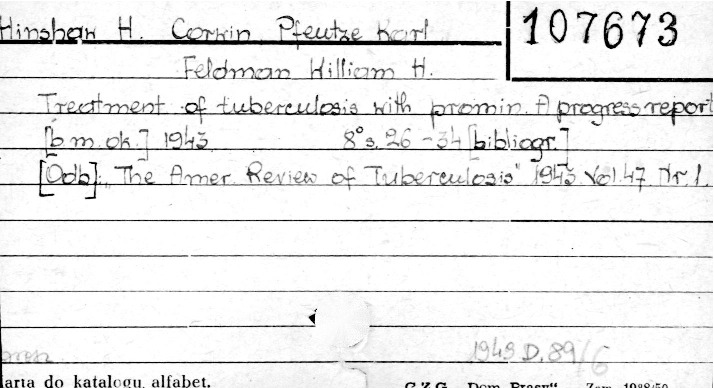 Hinshaw H. Corwin Pfeutze Karl
107673
Feldman William H.
Treatment of tuberculosis with promin. A progress report
[b.m. ok.] 1943 8° s. 26-34 [bibliogr.]
[Odb]: „The Amer. Review of Tuberculosis" 1943 Vol. 47 Nr. 1.
1949 D. 89/6
arta do katalogu alfabet. C.Z.G. „Dom Prasy"